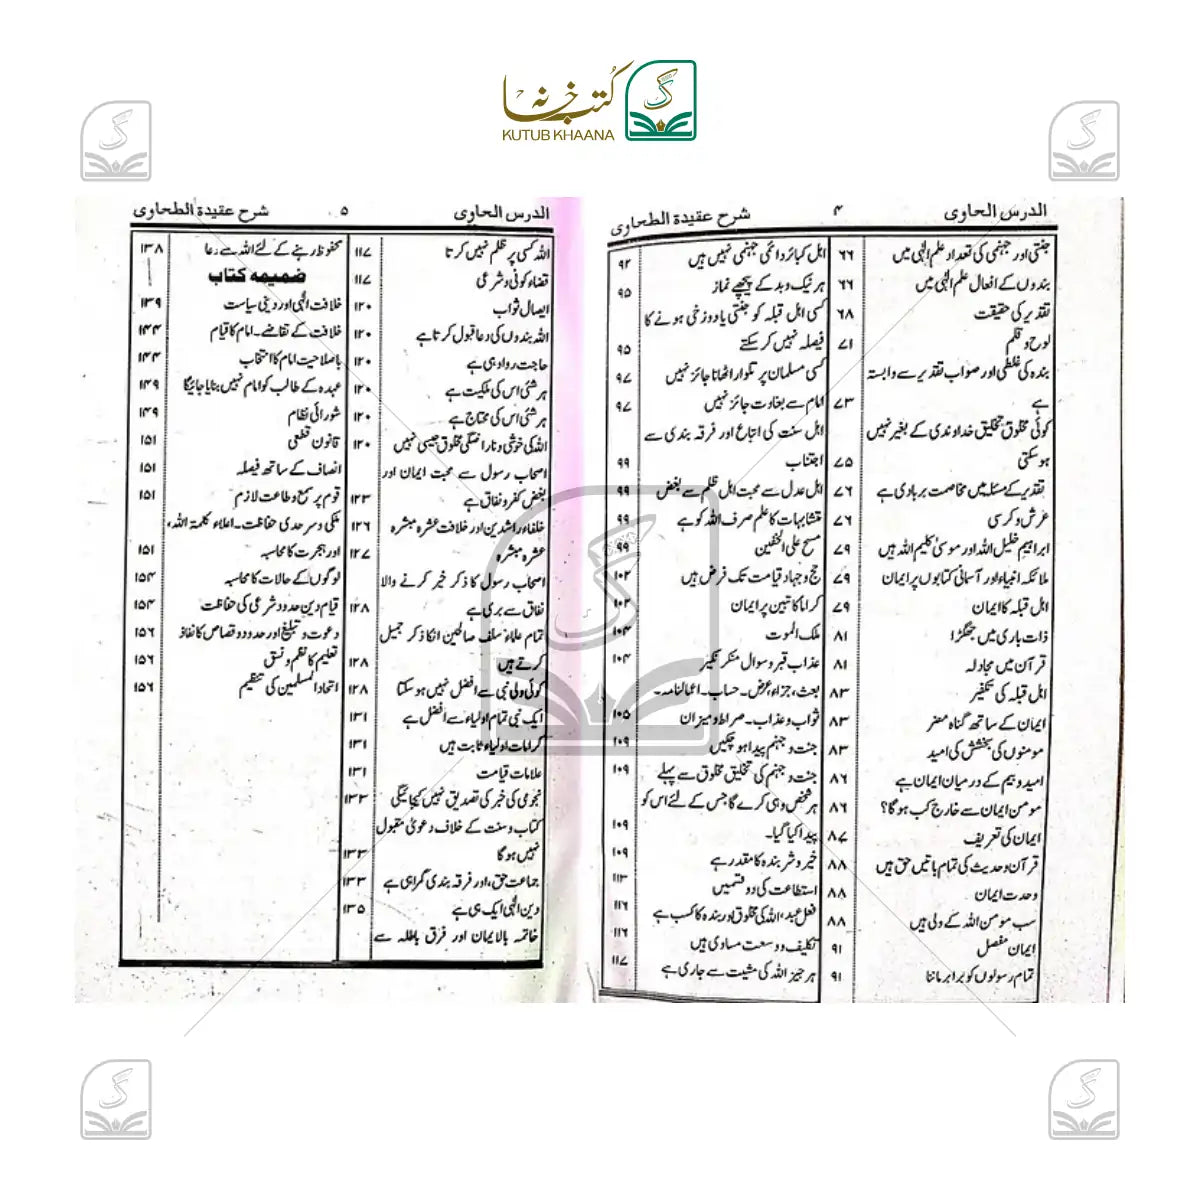 کتب خانہ
KUTUB KHAANA
الدرس الحاوی ۴ شرح عقیدۃ الطحاوی
جنتی اور جہنمی کی تعداد علم الٰہی میں ۶۶
بندوں کے افعال علم الٰہی میں ۶۶
تقدیر کی حقیقت ۶۸
لوح و قلم ۷۱
بندہ کی غلطی اور صواب تقدیر سے وابستہ
ہے ۷۳
کوئی مخلوق تخلیق خداوندی کے بغیر نہیں
ہوسکتی ۷۵
تقدیر کے مسئلہ میں مخاصمت بربادی ہے ۷۶
عرش و کرسی ۷۶
ابراہیم خلیل اللہ اور موسیٰ کلیم اللہ ہیں ۷۹
ملائکہ انبیاء اور آسمانی کتابوں پر ایمان ۷۹
اہل قبلہ کا ایمان ۷۹
ذات باری میں جھگڑا ۸۱
قرآن میں مجادلہ ۸۱
اہل قبلہ کی تکفیر ۸۳
ایمان کے ساتھ گناہ مضر ۸۳
مومنوں کی بخشش کی امید ۸۳
امید و بیم کے درمیان ایمان ہے ۸۶
مومن ایمان سے خارج کب ہوگا؟ ۸۶
ایمان کی تعریف ۸۷
قرآن و حدیث کی تمام باتیں حق ہیں ۸۸
وحدت ایمان ۸۸
سب مومن اللہ کے ولی ہیں ۸۸
ایمان مفصل ۹۱
تمام رسولوں کو برابر ماننا ۹۱
اہل کبائر دائمی جہنمی نہیں ہیں ۹۲
ہر نیک و بد کے پیچھے نماز ۹۵
کسی اہل قبلہ کو جنتی یا دوزخی ہونے کا
فیصلہ نہیں کر سکتے ۹۵
کسی مسلمان پر تلوار اٹھانا جائز نہیں ۹۷
امام سے بغاوت جائز نہیں ۹۷
اہل سنت کی اتباع اور فرقہ بندی سے
اجتناب ۹۹
اہل عدل سے محبت اہل ظلم سے بغض ۹۹
متشابہات کا علم صرف اللہ کو ہے ۹۹
مسح علی الخفین ۹۹
حج و جہاد قیامت تک فرض ہیں ۱۰۲
کراما کاتبین پر ایمان ۱۰۲
ملک الموت ۱۰۴
عذاب قبر و سوال منکر نکیر ۱۰۴
بعث، جزاء، عرض۔ حساب۔ اعمالنامہ۔
ثواب و عذاب۔ صراط و میزان ۱۰۵
جنت و جہنم پیدا ہو چکیں ۱۰۹
جنت و جہنم کی تخلیق مخلوق سے پہلے ۱۰۹
ہر شخص وہی کرے گا جس کے لئے اس کو
پیدا کیا گیا۔ ۱۰۹
خیر و شر بندہ کا مقدر ہے ۱۰۹
استطاعت کی دو قسمیں ۱۱۳
فعل عبد، اللہ کی مخلوق اور بندہ کا کسب ہے ۱۱۶
تکلیف و وسعت مساوی ہیں ۱۱۶
ہر چیز اللہ کی مشیت سے جاری ہے ۱۱۷
الدرس الحاوی ۵ شرح عقیدۃ الطحاوی
اللہ کسی پر ظلم نہیں کرتا ۱۱۷
قضاء کونی و شرعی ۱۱۷
ایصال ثواب ۱۲۰
اللہ بندوں کی دعا قبول کرتا ہے ۱۲۰
حاجت روا وہی ہے ۱۲۰
ہر شئی اس کی ملکیت ہے ۱۲۰
ہر شئی اس کی محتاج ہے ۱۲۰
اللہ کی خوشی و ناراضگی مخلوق جیسی نہیں ۱۲۰
اصحاب رسول سے محبت ایمان اور
بغض کفر و نفاق ہے ۱۲۳
خلفاء راشدین اور خلافت عشرہ مبشرہ ۱۲۶
عشرہ مبشرہ ۱۲۷
اصحاب رسول کا ذکر خیر کرنے والا
نفاق سے بری ہے ۱۲۸
تمام علماء سلف صالحین انکا ذکر جمیل
کرتے ہیں ۱۲۸
کوئی ولی نبی سے افضل نہیں ہو سکتا ۱۲۸
ایک نبی تمام اولیاء سے افضل ہے ۱۳۱
کرامات اولیاء ثابت ہیں ۱۳۱
علامات قیامت ۱۳۱
نجومی کی خبر کی تصدیق نہیں کیجائیگی ۱۳۳
کتاب و سنت کے خلاف دعویٰ مقبول
نہیں ہوگا ۱۳۳
جماعت حق، اور فرقہ بندی گمراہی ہے ۱۳۳
دین الٰہی ایک ہی ہے ۱۳۵
خاتمہ بالایمان اور فرق باطلہ سے
محفوظ رہنے کے لئے اللہ سے دعا ۱۳۸
ضمیمہ کتاب
خلافت الٰہی اور دینی سیاست ۱۳۹
خلافت کے تقاضے۔ امام کا قیام ۱۴۴
باصلاحیت امام کا انتخاب ۱۴۴
عہدہ کے طالب کو امام نہیں بنایا جائیگا ۱۴۹
شورائی نظام ۱۴۹
قانون قطعی ۱۵۱
انصاف کے ساتھ فیصلہ ۱۵۱
قوم پر سمع و طاعت لازم ۱۵۱
ملکی و سرحدی حفاظت۔ اعلاء کلمۃ اللہ،
اور ہجرت کا محاسبہ ۱۵۱
لوگوں کے حالات کا محاسبہ ۱۵۴
قیام دین حدود شرعی کی حفاظت ۱۵۴
دعوت و تبلیغ اور حدود و قصاص کا نفاذ ۱۵۶
تعلیم کا نظم و نسق ۱۵۶
اتحاد المسلمین کی تنظیم ۱۵۶